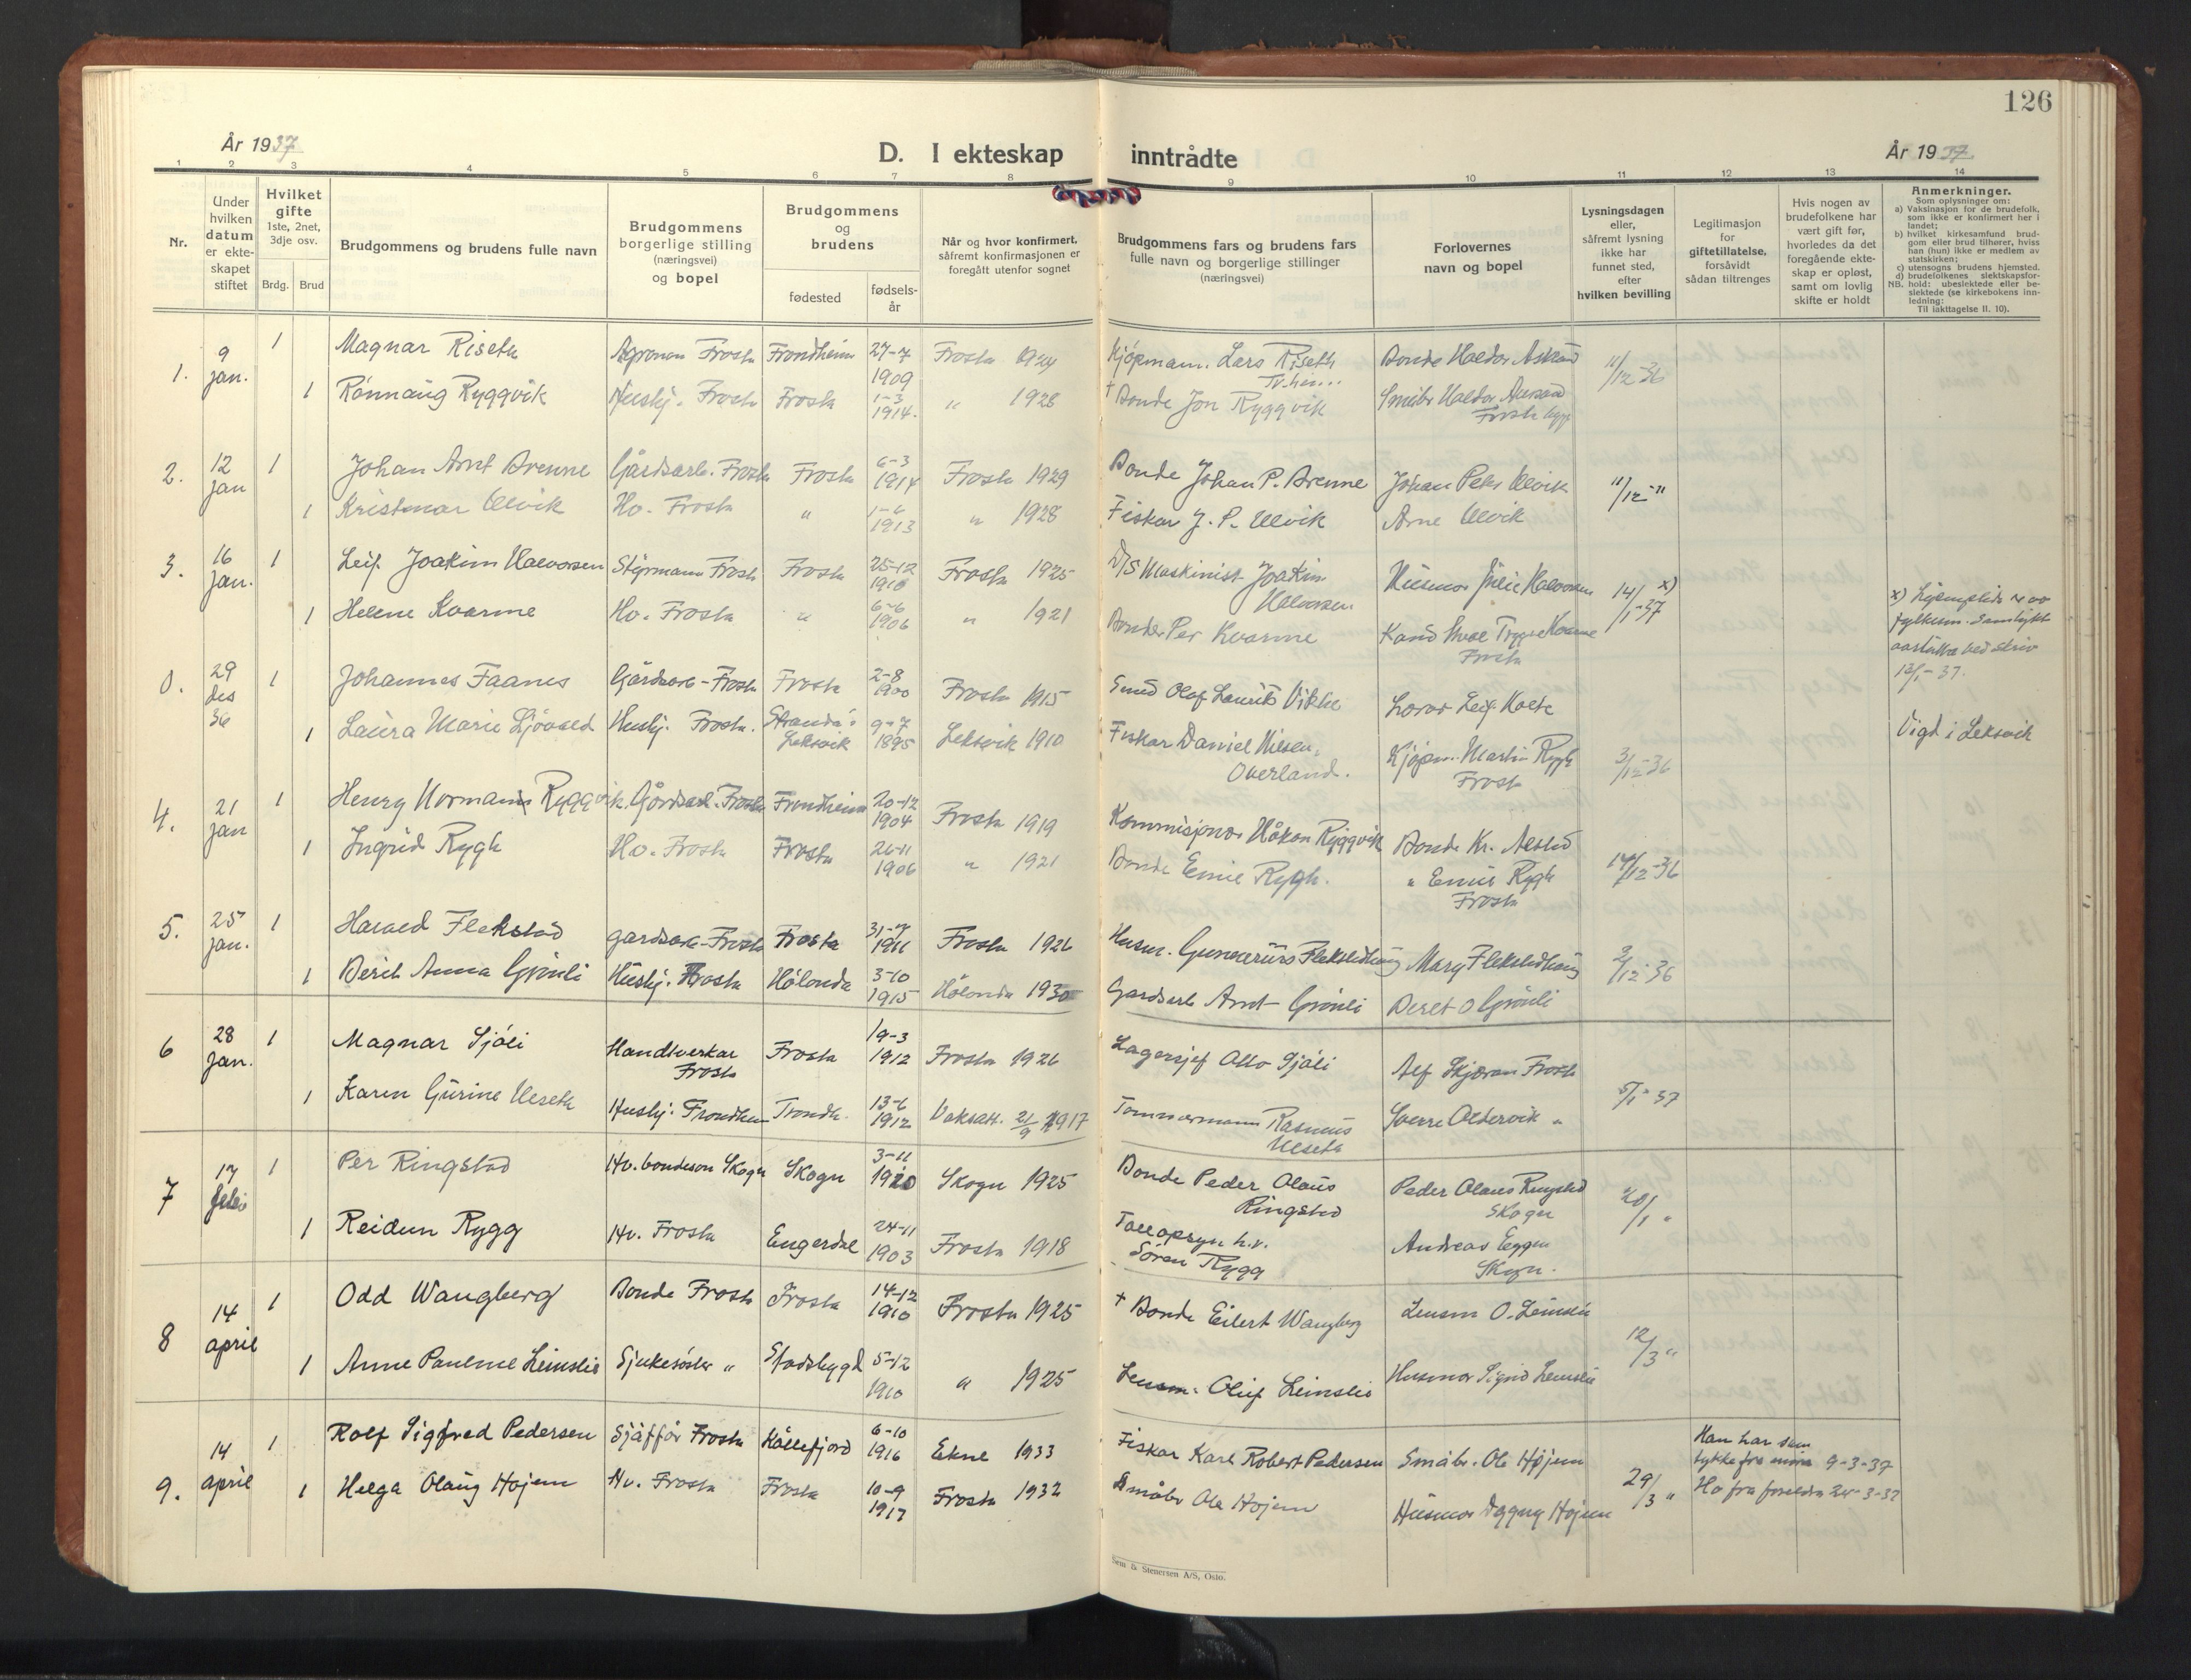 126
År 1937
D. I ekteskap inntrådte
År 1937
1 2 3 4 5 6 7 8 9 10 11 12 13 14
Nr.
Under hvilken datum er ekte-skapet stiftet
Hvilket gifte 1ste, 2net, 3dje osv.
Brdg. Brud
Brudgommens og brudens fulle navn
Brudgommens borgerlige stilling (næringsvei) og bopel
Brudgommens og brudens
fødested
fødsels-år
Når og hvor konfirmert, såfremt konfirmasjonen er foregått utenfor sognet
Brudgommens fars og brudens fars fulle navn og borgerlige stillinger (næringsvei)
Forlovernes navn og bopel
Lysningsdagen eller, såfremt lysning ikke har funnet sted, efter hvilken bevilling
Legitimasjon for giftetillatelse, forsåvidt sådan tiltrenges
Hvis nogen av brudefolkene har vært gift før, hvorledes da det foregående ekte-skap er opløst, samt om lovlig skifte er holdt
Anmerkninger.
Som oplysninger om:
a) Vaksinasjon for de brudefolk, som ikke er konfirmert her i landet;
b) hvilket kirkesamfund brud-gom eller brud tilhører, hviss han (hun) ikke er medlem av statskirken;
c) utensogns brudens hjemsted.
d) brudefolkenes slektskapsfor-hold: ubeslektede eller be-slektede (se kirkebokens inn-ledning:
NB.
Til iakttagelse II. 10).
1. 9 jan. 1 Magnar Riseth Agronom Frosta Trondheim 27-7 1909 Frosta 1924 Kjøpmann. Lars Riseth Tr.heim Bonde Haldor Aststad 11/12-36
1 Rønnaug Ryggvik Hushj. Frosta Frosta 1-3 1914. " 1928 † Bonde Jon Ryggvik Småbr Haldor Frosta
2. 12 jan 1 Johan Arnt Brenne Gårdsarb. Frosta Frosta 6-3 1914 Frosta 1929 Bonde Johan P. Brenne Johan Peter Ulvik 11/12-"
1 Kristmar Ulvik Hv. Frosta " 1-6 1913 " 1928 Fiskar J. P. Ulvik Arne Ulvik
3. 16 jan. 1 Leif Joakim Halvorsen Styrmann Frosta Frosta 25-12 1910 Frosta 1925 D/S Maskinist Joakim Halvorsen Husmor Julie Halvorsen 14/1-37 x)
1 Helene Kvarme Hv. Frosta " 6-6 1906 " 1921 Bonde Per Kvarme Kand Trygve Kvarme Frosta
x) fylkesm. samtykke ved skriv 13/1-37.
0. 29 des 36 1 Johannes Faanes Gårdsarb-Frosta Frosta 2-8 1900 Frosta 1915 Smed Olaf Laurits Vikhe Lærar Leif Kvele
1 Laura Marie Ljøvold Hushj. Frosta. Stranda i Leksvik 9-7 1895 Leksvik 1910 Fiskar Daniel Nilsen Overland. Kjøpm. Martin Rygh Frosta 3/12-36 Vigd i Leksvik
4. 21 jan 1 Henry Normann Ryggvik. Gårdsarb. Frosta Trondheim 20-12 1904 Frosta 1919 Kommisjonær Håkon Ryggvik Bonde Kr. Alstad
1 Ingrid Rygh Hv. Frosta Frosta 26-11 1906 " 1921 Bonde Emil Rygh. " Emil Rygh Frosta 14/12-36
5. 25 jan. 1 Harald Flekstad gardsarb-Frosta Frosta 31-7 1911 Frosta 1926 Husm. Gunnerius Flekstadhaug Mary Flekstadhaug 2/12-36
1 Berit Anna Grønli Hushj. Frosta Hølonda 3-10 1915 Hølonda 1930 Gardsarb Arnt Grønli Beret O Grønli
6 28 jan. 1 Magnar Sjøli Handtverkar Frosta Frosta 19-3 1912 Frosta 1926 Lagersjef Otto Sjøli Alf Skjervan Frosta 5/1-37
1 Karen Gurine Ulseth Hushj. Trondheim Trondh. 13-6 1912 Vaksatt. 21/9 1917 Tømmermann Rasmus Ulseth Sverre Oldervik "
7 17 febr 1 Per Ringstad Hv. bondeson Skogn Skogn 3-11 1910 Skogn 1925 Bonde Peder Olaus Ringstad Peder Olaus Ringstad Skogn 20/1 "
1 Reidun Rygg Hv. Frosta Engerdal 24-11 1903 Frosta 1918 Tollopsyn h.v. Søren Rygg Andreas Eggen Skogn.
8 14 april 1 Odd Wangberg Bonde Frosta Frosta 14-12 1910 Frosta 1925 † Bonde Eilert Wangberg Lensm O. Leinslie 12/3 "
1 Anne Pauline Leinslie Sjukesøster " Stadsbygd 5-12 1910 " 1925 Lensm. Oluf Leinslie Husmor Sigrid Leinslie
9. 14 april 1 Rolf Sigfred Pedersen Sjåffør Frosta Kållefjord 6-10 1916 Ekne 1933 Fiskar Karl Robert Pedersen Småbr. Ole Højem 29/3 " Han har samtykke fra mora 9-3-37
1 Helga Olaug Højem Hv. Frosta Frosta 10-9 1917 Frosta 1932 Småbr Ole Højem Husmor Dagny Højem Ho fra foreldra 24-3-37
Sem & Stenersen A/S, Oslo.